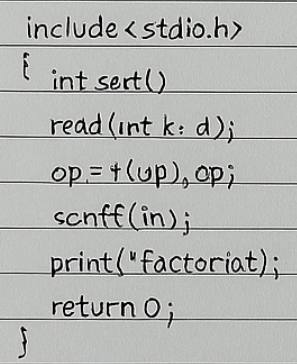 include<stdio.h>
{ int sert()
read(int k: d);
op.= +(up), op;
scnff(in);
print("factoriat);
return 0;
}